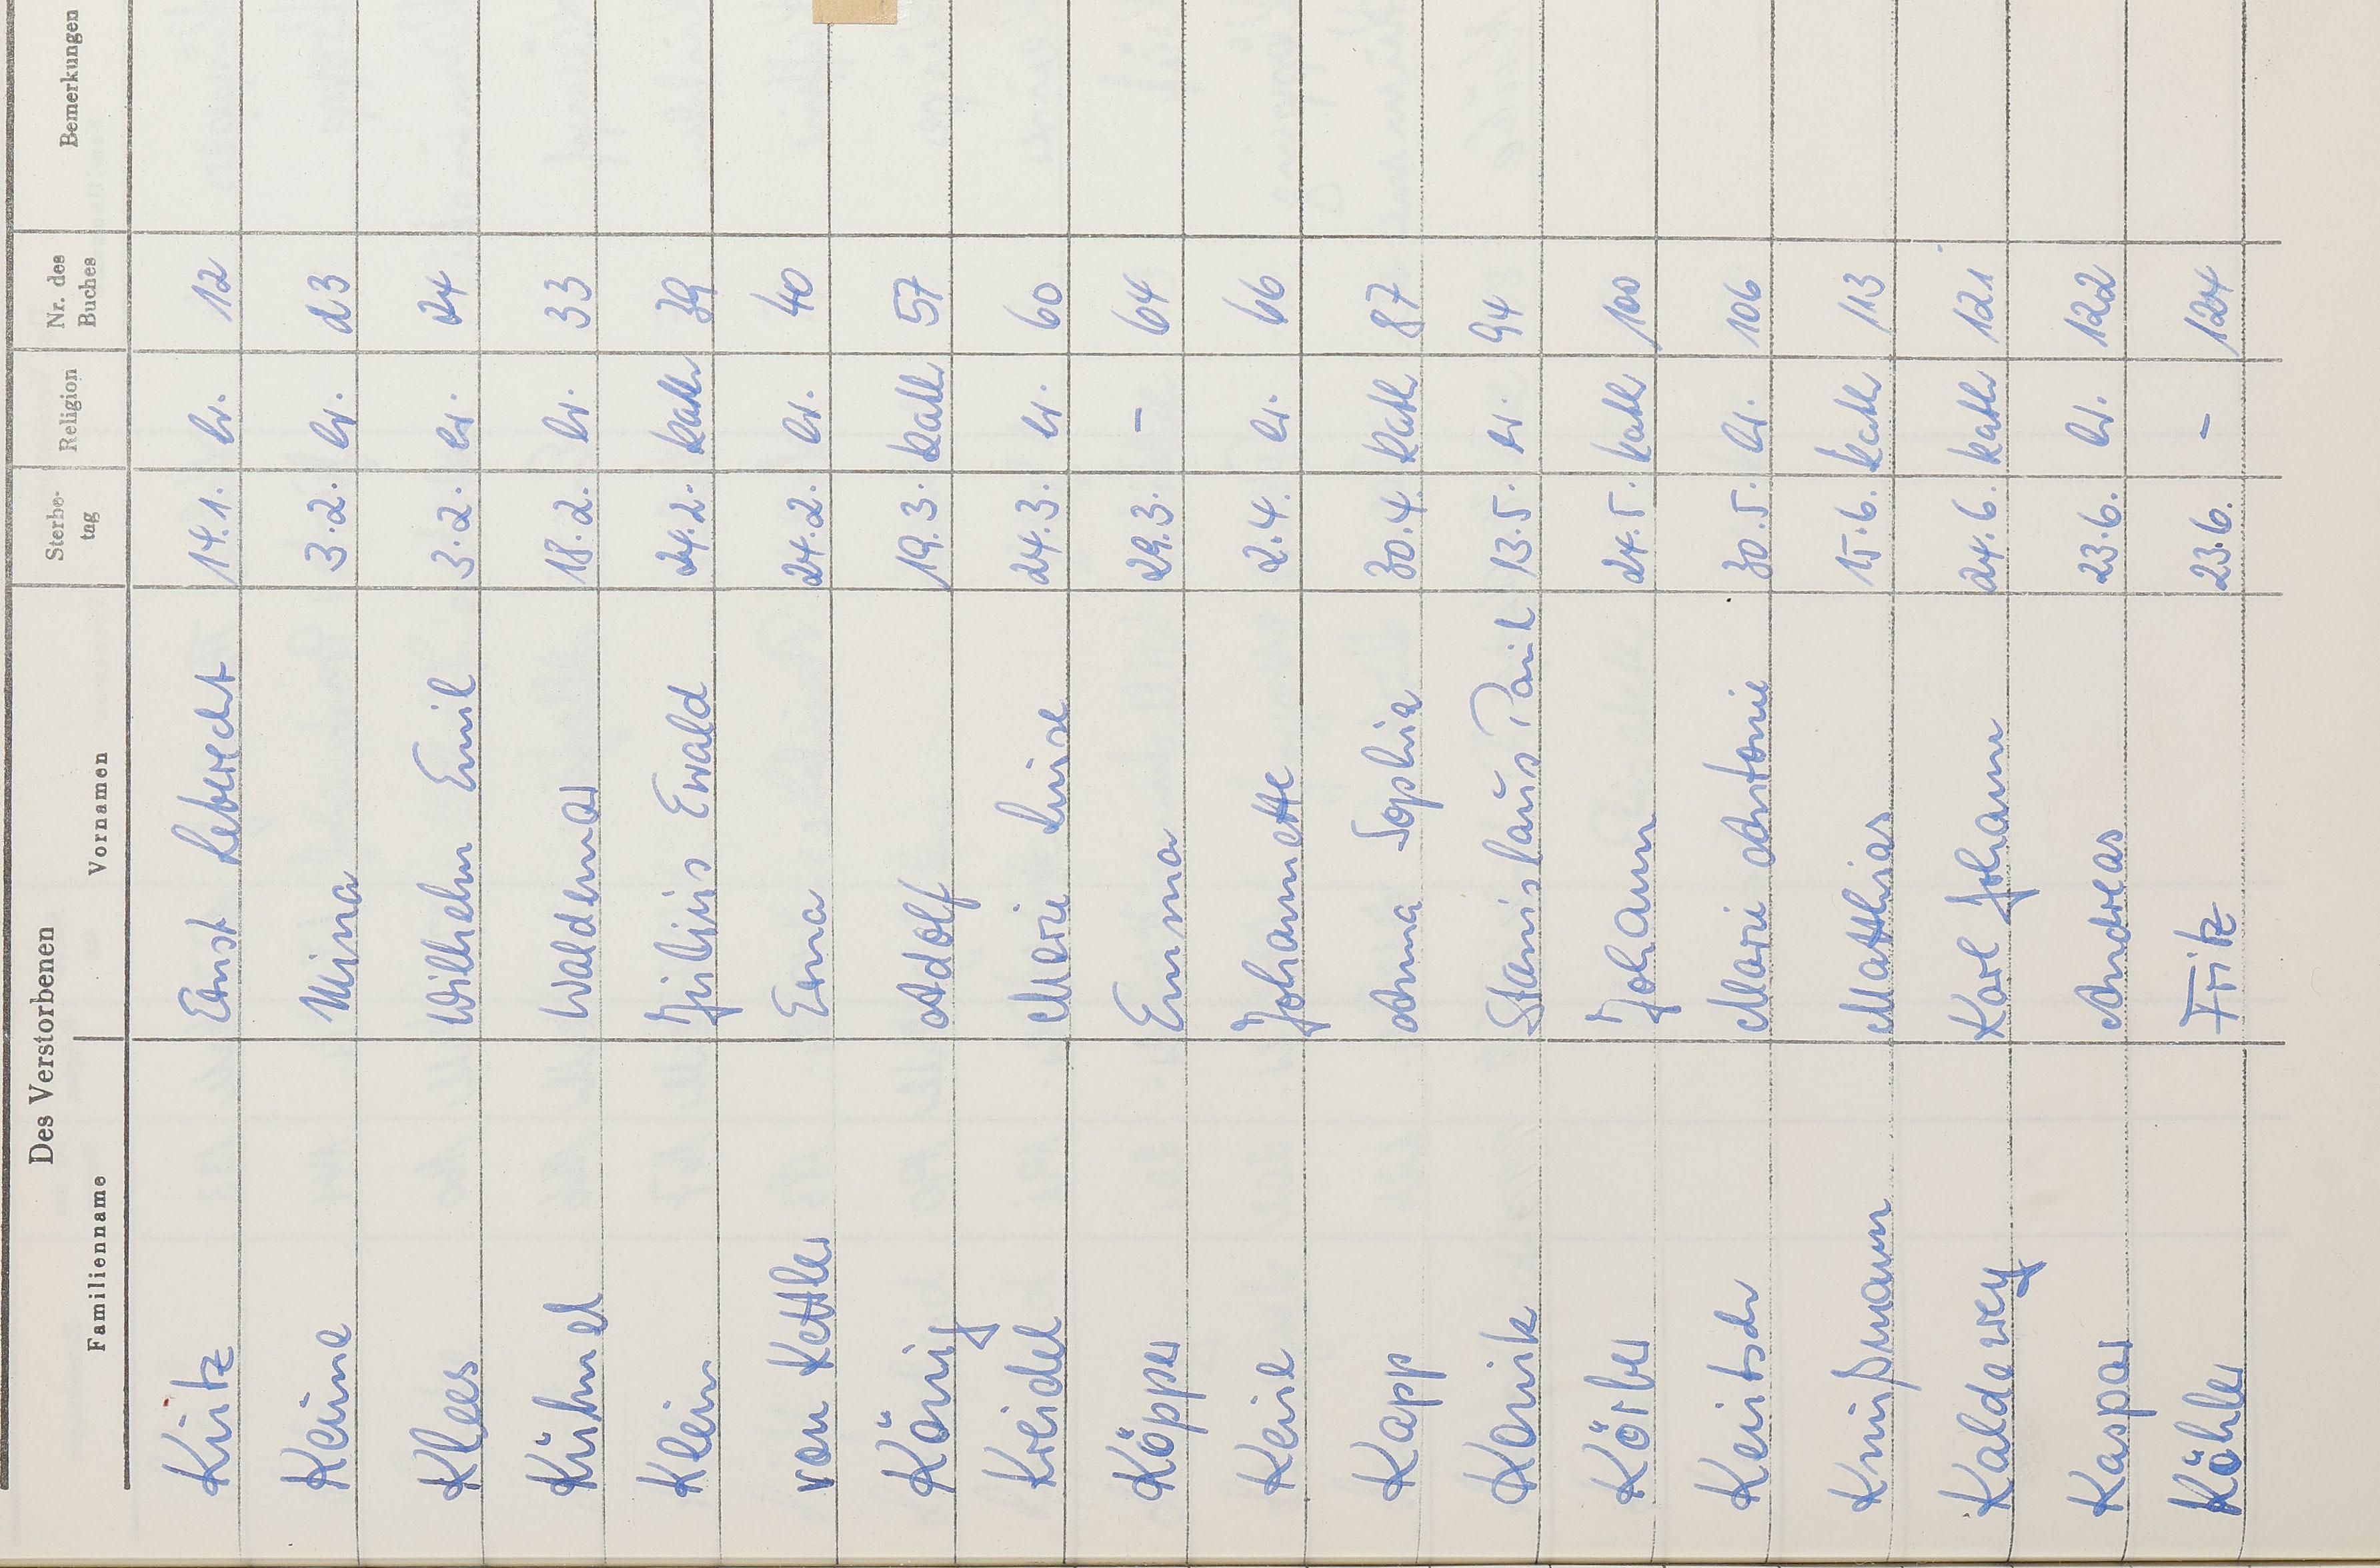 Des Verstorbenen
Familienname Vornamen Sterbe-tag Religion Nr. des Buches Bemerkungen
Kütz Ernst Leberecht 14.1. ev. 12
Keune Mina 3.2. ev. 23
Klees Wilhelm Emil 3.2. ev. 24
Kühnel Waldemar 18.2. ev. 33
Klein Julius Ewald 24.2. kath 39
von Kettler Erna 24.2. ev. 40
König Adolf 19.3. kath 57
Kreidel Marie Luise 24.3. ev. 60
Köpper Emma 29.3. – 64
Keil Johannette 2.4. ev. 66
Kapp Anna Sophia 30.4. kath 87
Konik Stanislaus Paul 13.5. ev. 94
Körber Johann 24.5. kath 100
Keutsch Marie Antonie 30.5. ev. 106
Knußmann Matthias 15.6. kath 113
Kaldewey Karl Johann 24.6. kath 121
Kasper Andreas 23.6. ev. 122
Köhler Fritz 23.6. – 124